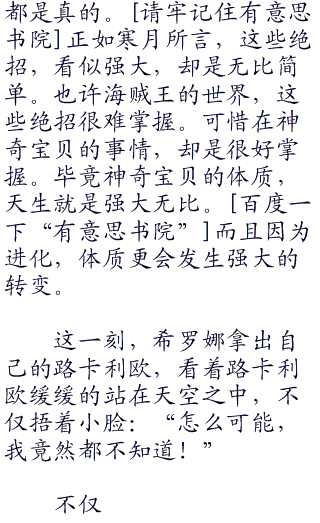 都是真的。[请牢记住有意思
书院]正如寒月所言，这些绝
招，看似强大，却是无比简
单。也许海贼王的世界，这
些绝招很难掌握。可惜在神
奇宝贝的事情，却是很好掌
握。毕竟神奇宝贝的体质，
天生就是强大无比。[百度一
下“有意思书院”]而且因为
进化，体质更会发生强大的
转变。
这一刻，希罗娜拿出自
己的路卡利欧，看着路卡利
欧缓缓的站在天空之中，不
仅捂着小脸：“怎么可能，
我竟然都不知道！”
不仅